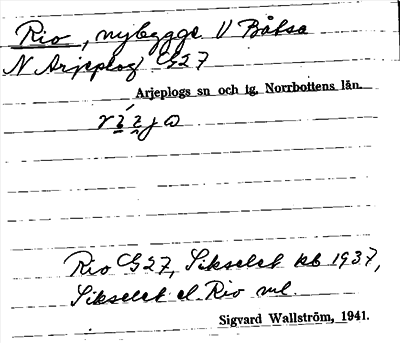 Rio, nybygge V Båtsa
N Arjeplog G27
Arjeplogs sn och tg, Norrbottens län.
Rio G27, Sikselet kb 1937,
Sikselet el. Rio ml.
Sigvard Wallström, 1941.